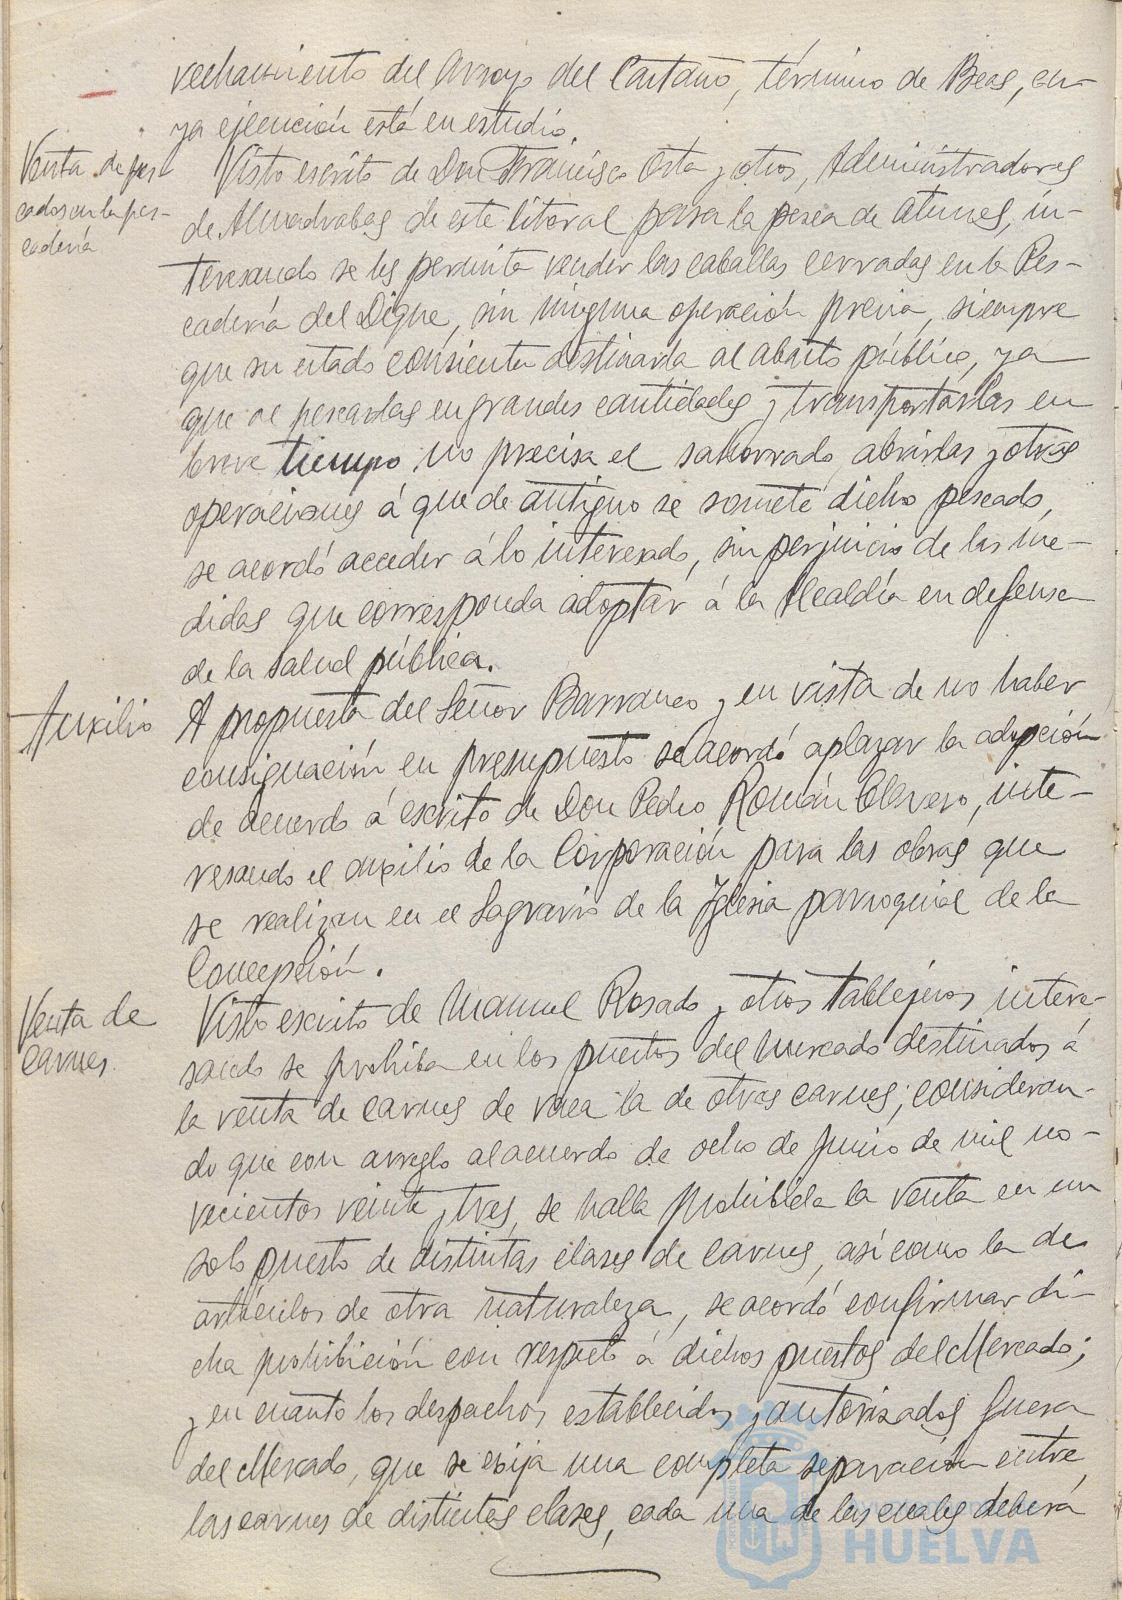 vechamiento del Arroyo del Castaño, término de Beas, cu-
ya ejecución está en estudio.
Venta de pes
cados en la pes-
cadería
Visto escrito de Don Francisco Orta y otros, Administradores
de Almadrabas de este litoral para la pesca de atunes, in-
teresando se les permita vender las caballas cerradas en la Pes-
cadería del Dique, sin ninguna operación previa, siempre
que su estado consienta destinarla al abasto público, ya
que al pescarlas en grandes cantidades y transportarlas en
breve tiempo no precisa el sahorrado, abrirlas y otras
operaciones á que de antiguo se somete dicho pescado,
se acordó acceder á lo interesado, sin perjuicio de las me-
didas que corresponda adoptar á la Alcaldía en defensa
de la salud pública.
Auxilio
A propuesta del Señor Barranco y en vista de no haber
consignación en presupuesto se acordó aplazar la adopción
de acuerdo á escrito de Don Pedro Román Clavero, inte-
resando el auxilio de la Corporación para las obras que
se realizan en el Sagrario de la Iglesia parroquial de la
Concepción.
Venta de
carnes.
Visto escrito de Manuel Rosado y otros tablejeros intere-
sando se prohiba en los puestos del Mercado destinados á
la venta de carnes de vaca la de otras carnes; consideran-
do que con arreglo al acuerdo de ocho de Junio de mil no-
vecientos veinte y tres, se halla prohibida la venta en un
solo puesto de distintas clases de carnes, así como la de
artículos de otra naturaleza, se acordó confirmar di-
cha prohibición con respecto á dichos puestos del Mercado;
y en cuanto los despachos establecidos y autorizados fuera
del Mercado, que se exija una completa separación entre
las carnes de distintas clases, cada una de las cuales deberá
HUELVA